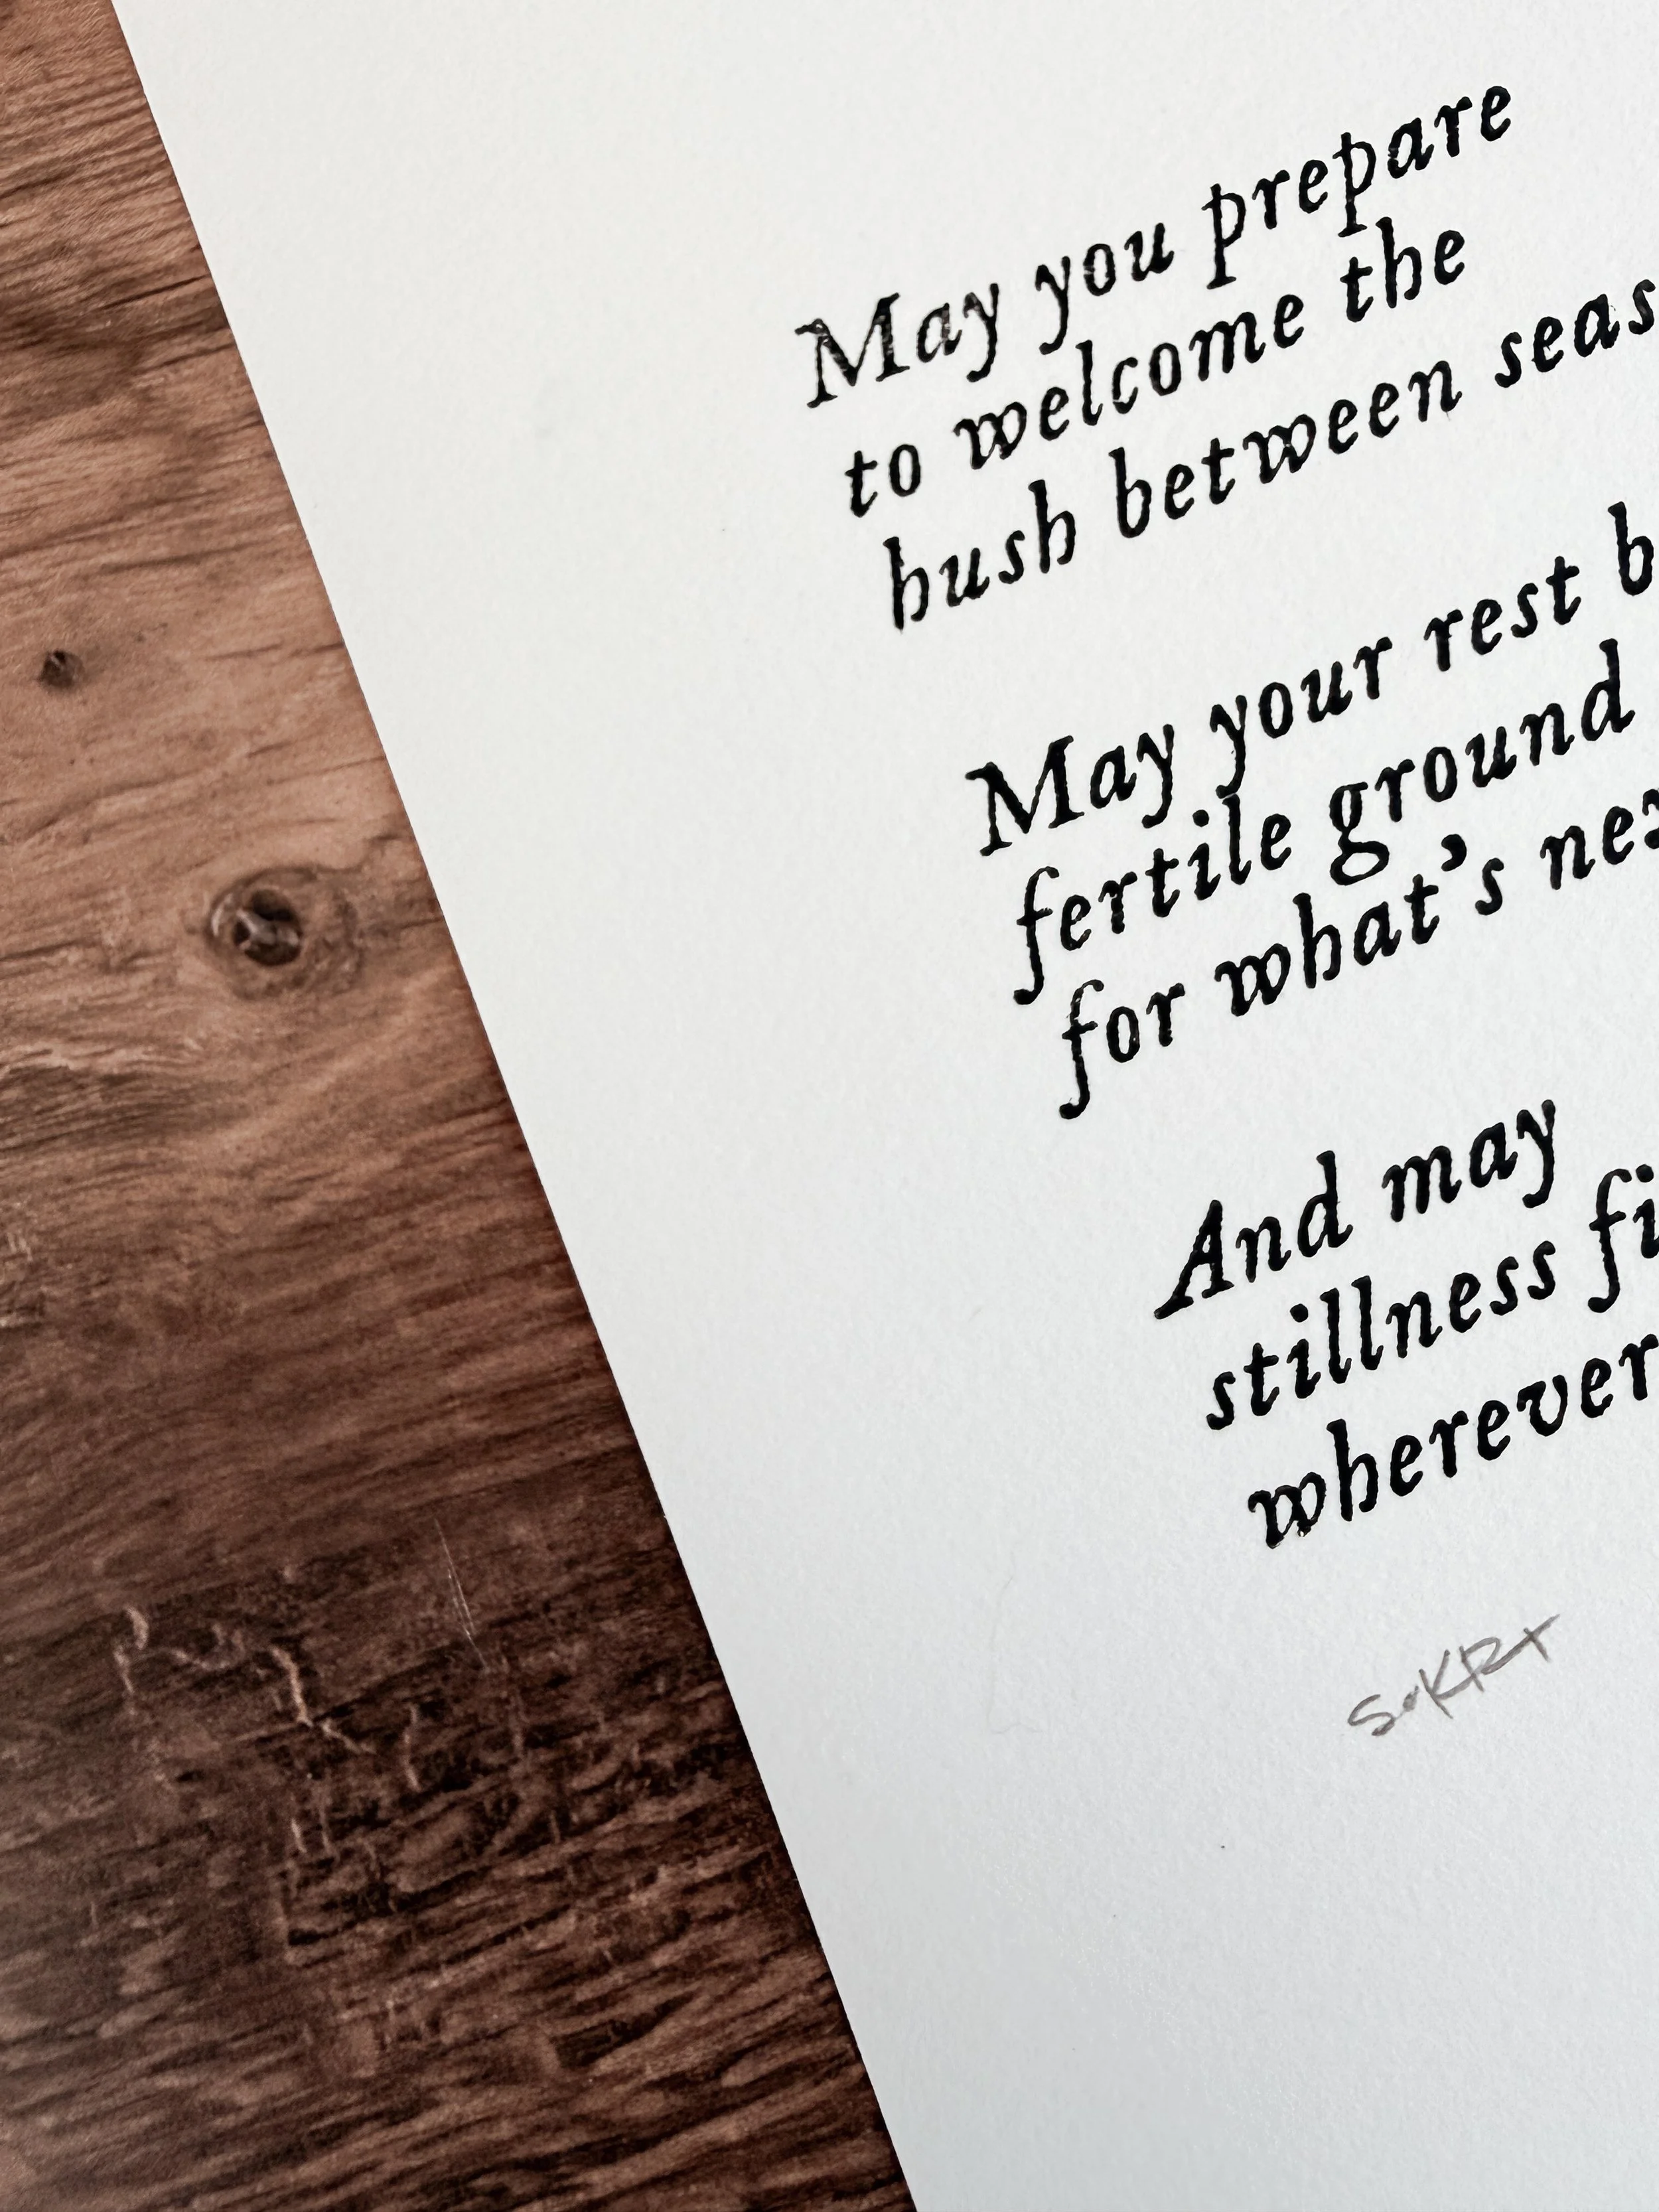 May you prepare
to welcome the
hush between seas
May your rest b
fertile ground
for what's nex
And may
stillness fi
wherever